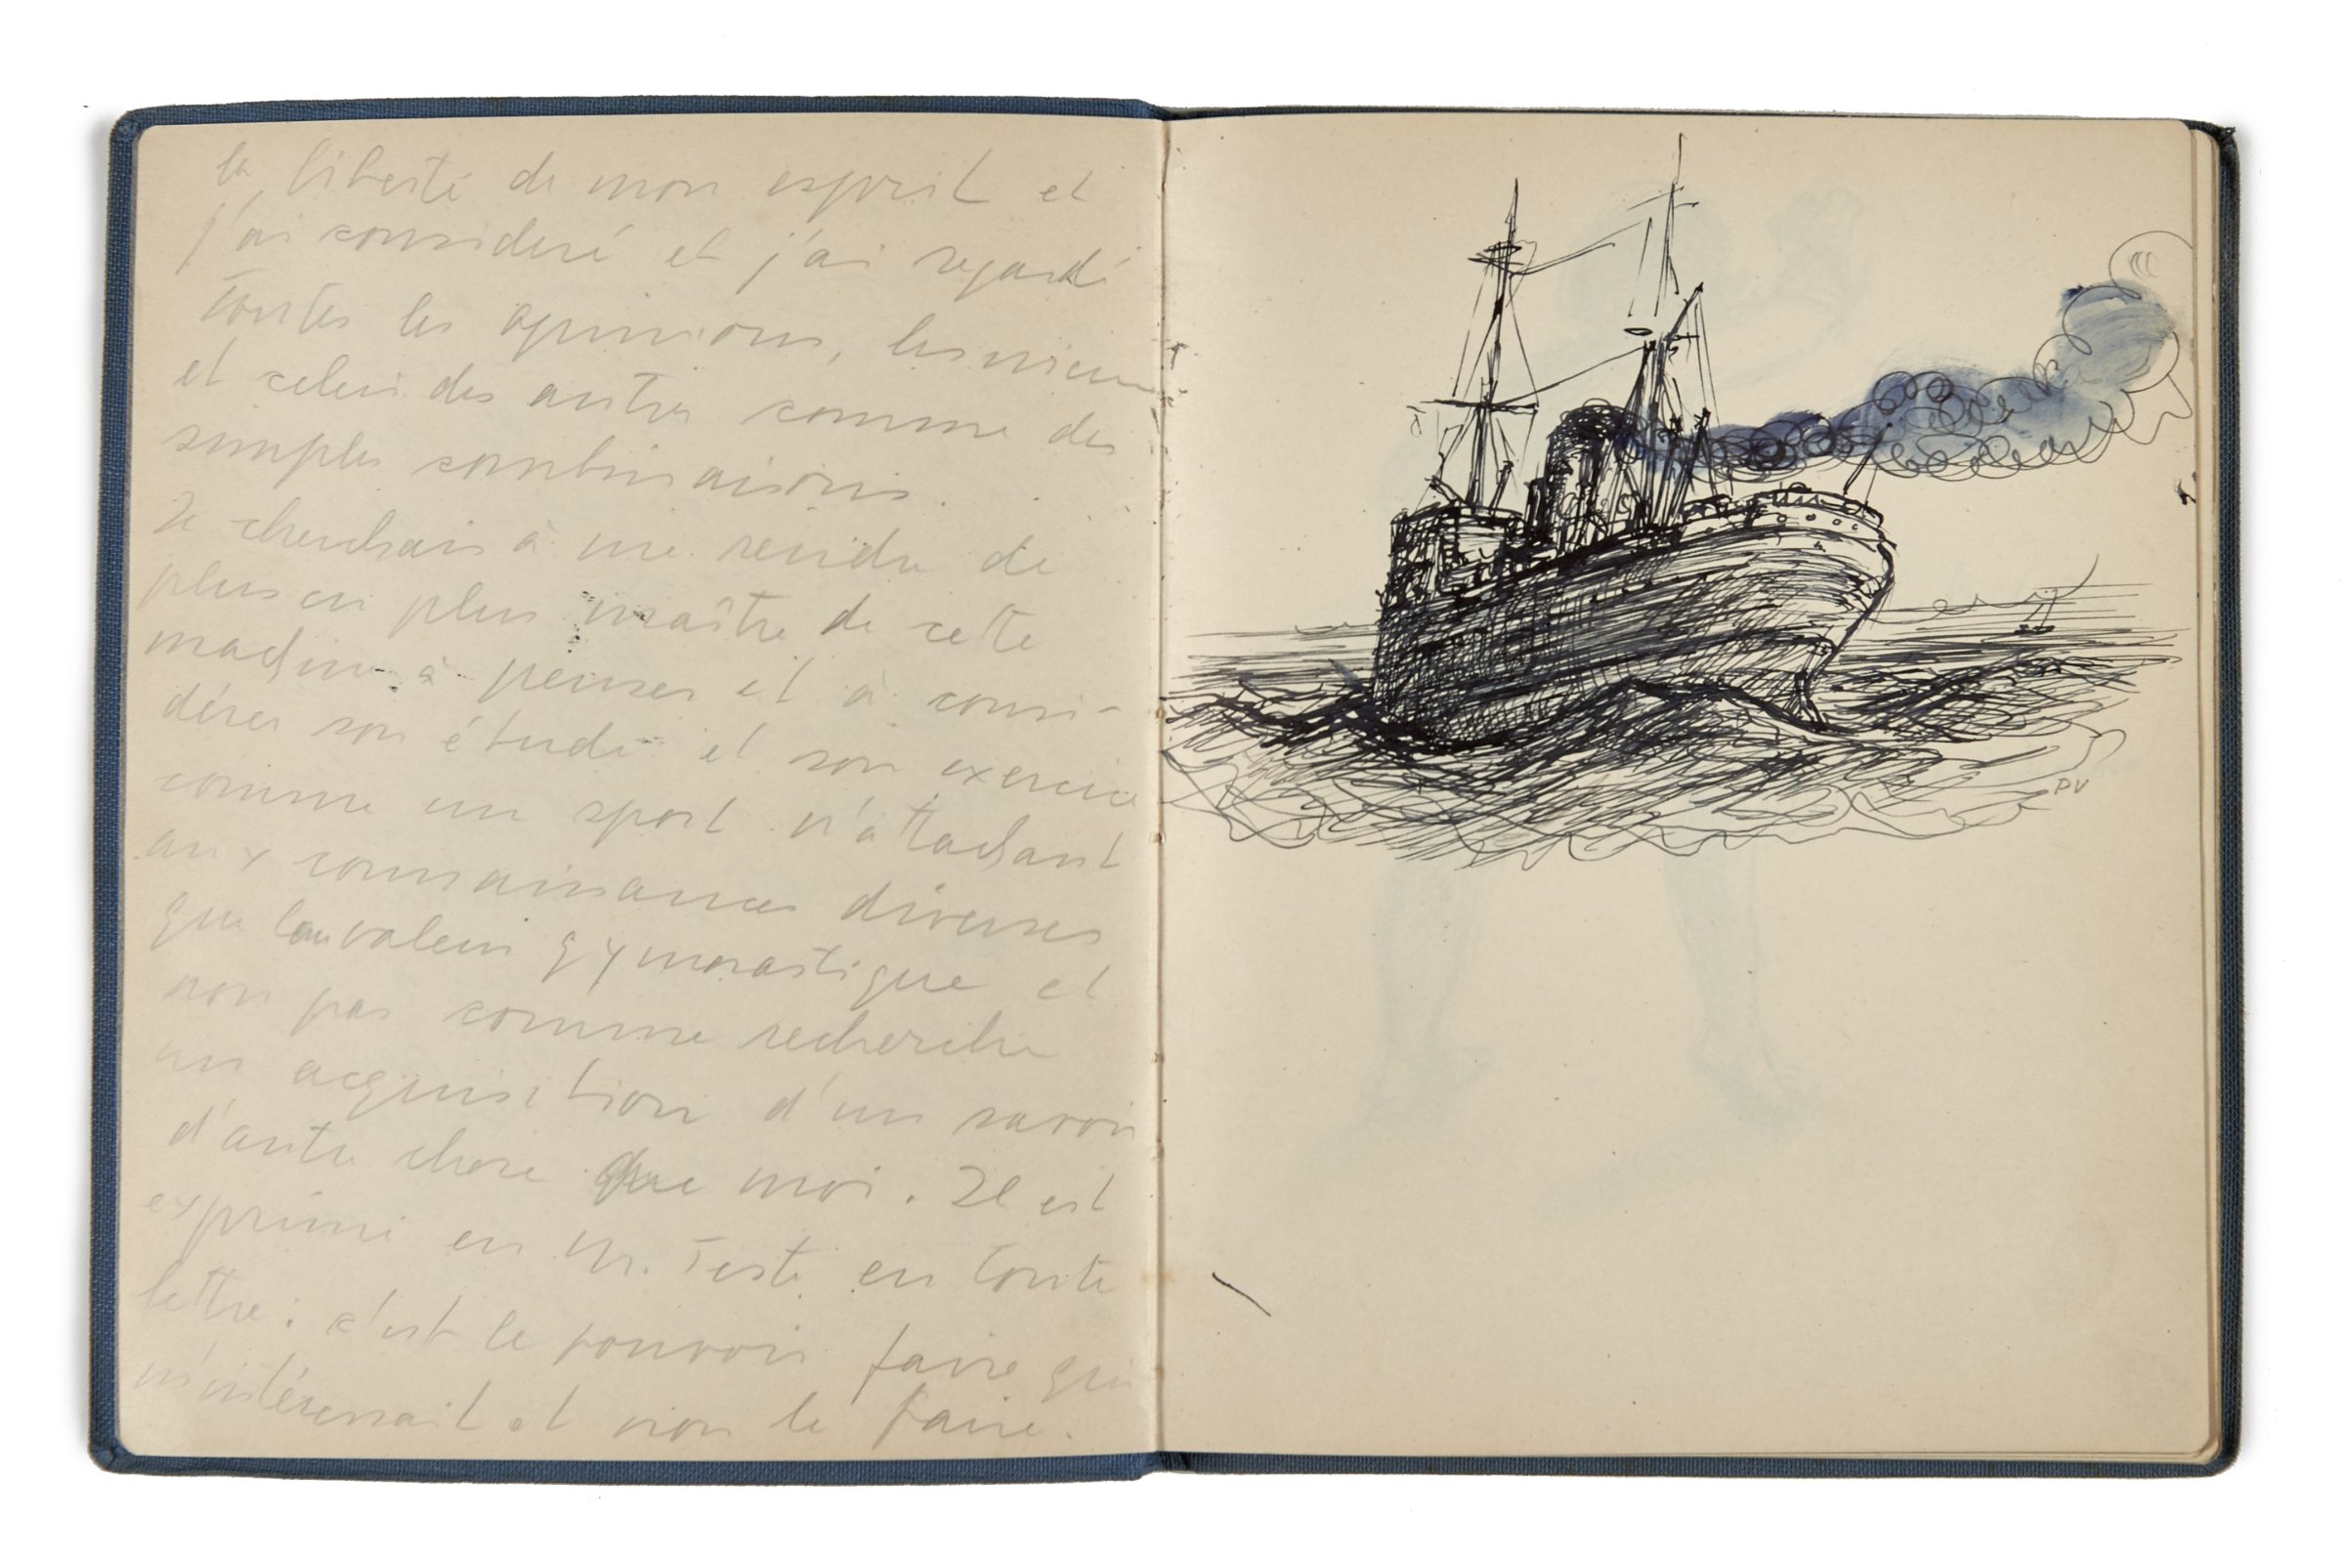 la liberté de mon esprit et
j'ai consideré et j'ai regardé
toutes les opinions, les miennes
et celui des autres comme des
simples combinaisons.
Je cherchais à me rendre de
plus en plus maître de cette
machine à penser et à consi-
dérer son étude et son exercice
comme un sport n'attachant
aux connaissances diverses
que leur valeur gymnastique et
non pas comme recherche
ou acquisition d'un savoir
d'autre chose que moi. Il est
exprimé en M. Teste en toute
lettre : c'est le pouvoir faire qui
m'intéressait et non le faire.
PV